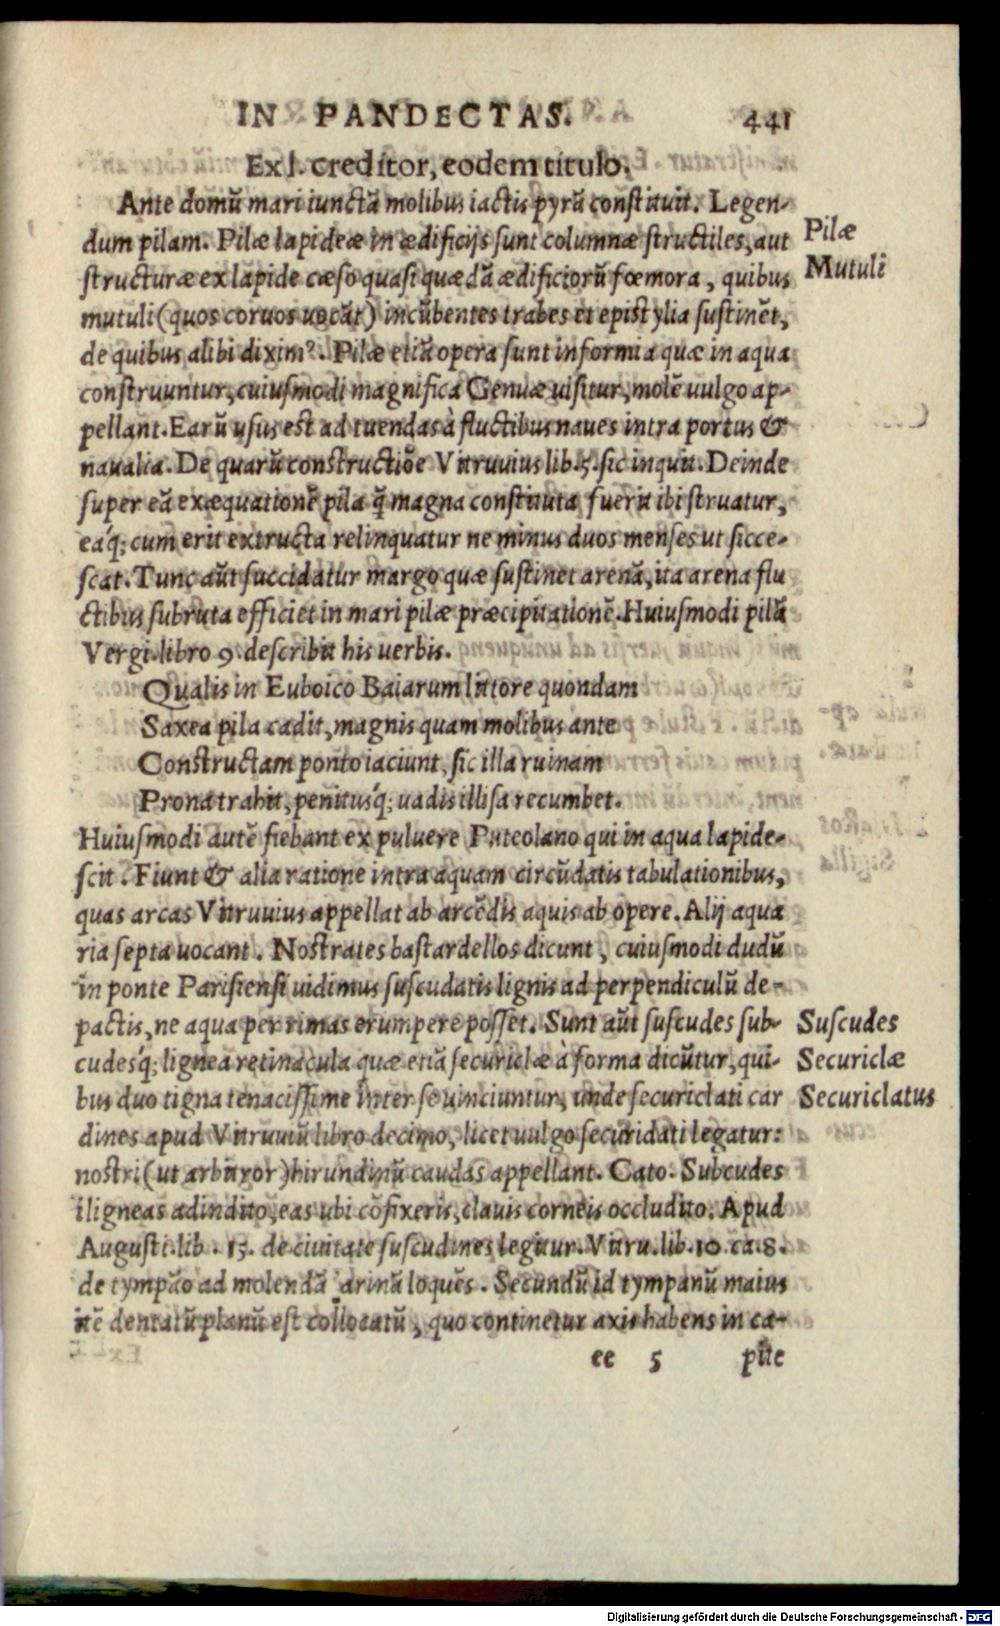 IN PANDECTAS. 441
Ex l. creditor, eodem titulo.
Ante domũ mari iunctã molibus iactis pyrũ constituit. Legen-
dum pilam. Pilæ lapideæ in ædificijs sunt columnæ structiles, aut
Pilæ
structuræ ex lapide cæso quasi quædã ædificiorũ fœmora, quibus
Mutuli
mutuli (quos coruos uocãt) incũbentes trabes et epistylia sustinẽt,
de quibus alibi dixim⁹. Pilæ etiã opera sunt informia quæ in aqua
construuntur, cuiusmodi magnifica Genuæ uisitur, molẽ uulgo ap-
pellant. Earũ usus est ad tuendas à fluctibus naues intra portus &
naualia. De quarũ constructiõe Vitruuius lib. 5. sic inquit. Deinde
super eã exæquationẽ pila q̃ magna constituta fuerit ibi struatur,
eáq; cum erit extructa relinquatur ne minus duos menses ut sicce-
scat. Tunc aũt succidatur margo quæ sustinet arenã, ita arena flu
ctibus subruta efficiet in mari pilæ præcipitationẽ. Huiusmodi pilã
Vergi. libro 9. describit his uerbis.
Qualis in Euboico Baiarum littore quondam
Saxea pila cadit, magnis quam molibus ante
Constructam ponto iaciunt, sic illa ruinam
Prona trahit, penitusq́; uadis illisa recumbet.
Huiusmodi autẽ fiebant ex puluere Puteolano qui in aqua lapide-
scit. Fiunt & alia ratione intra aquam circũdatis tabulationibus,
quas arcas Vitruuius appellat ab arcẽdis aquis ab opere. Alij aqua
ria septa uocant. Nostrates bastardellos dicunt, cuiusmodi dudũ
in ponte Parisiensi uidimus suscudatis lignis ad perpendiculũ de-
pactis, ne aqua per rimas erumpere posset. Sunt aũt suscudes sub-
Suscudes
cudesq́; lignea retinacula quæ etiã securiclæ à forma dicũtur, qui-
Securiclæ
bus duo tigna tenacissime inter se uinciuntur, unde securiclati car
Securiclatus
dines apud Vitruuiũ libro decimo, licet uulgo securidati legatur:
nostri (ut arbitror) hirundinũ caudas appellant. Cato. Subcudes
iligneas adindito, eas ubi cõfixeris, clauis corneis occludito. Apud
Augusti. lib. 15. de ciuitate suscudines legitur. Vitru. lib. 10. ca. 8.
de tympão ad molendã arinã loquẽs. Secundũ id tympanũ maius
itẽ dentatũ planũ est collocatũ, quo continetur axis habens in ca-
ee 5 pite
Digitalisierung gefördert durch die Deutsche Forschungsgemeinschaft - DFG